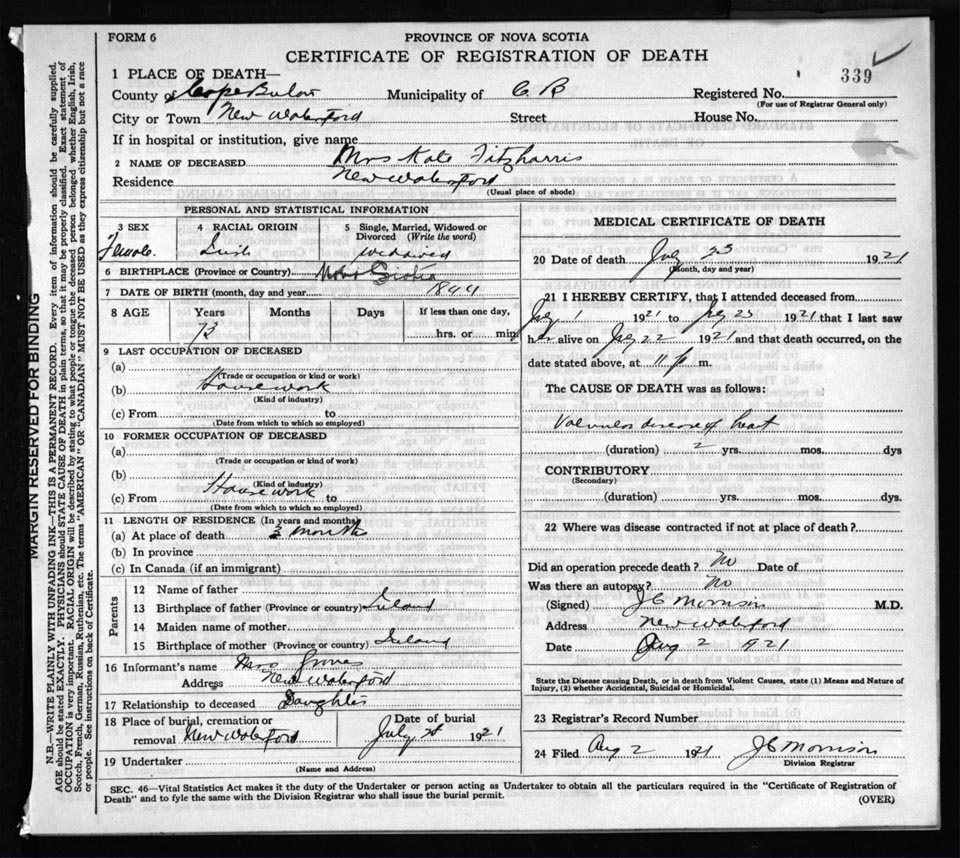 FORM 6
PROVINCE OF NOVA SCOTIA
CERTIFICATE OF REGISTRATION OF DEATH
339
1 PLACE OF DEATH—
County of Cape Breton Municipality of C. B Registered No.
(For use of Registrar General only)
City or Town New Waterford Street House No.
If in hospital or institution, give name
2 NAME OF DECEASED Mrs Kate Fitzharris
Residence New Waterford
(Usual place of abode)
PERSONAL AND STATISTICAL INFORMATION
3 SEX 4 RACIAL ORIGIN 5 Single, Married, Widowed or Divorced (Write the word)
Female Irish widowed
6 BIRTHPLACE (Province or Country) Nova Scotia
7 DATE OF BIRTH (month, day and year)
8 AGE Years Months Days If less than one day,
73 hrs. or min.
9 LAST OCCUPATION OF DECEASED
(a)
(Trade or occupation or kind or work)
(b) Housework
(Kind of industry)
(c) From to
(Date from which to which so employed)
10 FORMER OCCUPATION OF DECEASED
(a)
(Trade or occupation or kind of work)
(b) Housework
(Kind of industry)
(c) From to
(Date from which to which so employed)
11 LENGTH OF RESIDENCE (In years and months)
(a) At place of death months
(b) In province
(c) In Canada (if an immigrant)
Parents
12 Name of father
13 Birthplace of father (Province or country) Ireland
14 Maiden name of mother
15 Birthplace of mother (Province or country) Ireland
16 Informant's name Mrs
Address New Waterford
17 Relationship to deceased Daughter
18 Place of burial, cremation or removal New Waterford Date of burial July 1921
19 Undertaker
(Name and Address)
MEDICAL CERTIFICATE OF DEATH
20 Date of death July 23 1921
(Month, day and year)
21 I HEREBY CERTIFY, that I attended deceased from
July 1 1921 to July 23 1921 that I last saw
her alive on July 22 1921 and that death occurred, on the
date stated above, at 11 m.
The CAUSE OF DEATH was as follows:
Valvular disease of heart
(duration) 2 yrs. mos. dys
CONTRIBUTORY
(Secondary)
(duration) yrs. mos. dys.
22 Where was disease contracted if not at place of death?
Did an operation precede death? No Date of
Was there an autopsy? No
(Signed) J C Morrison M.D.
Address New Waterford
Date Aug 2 1921
State the Disease causing Death, or in death from Violent Causes, state (1) Means and Nature of
Injury, (2) whether Accidental, Suicidal or Homicidal.
23 Registrar's Record Number
24 Filed Aug 2 1921 J C Morrison
Division Registrar
SEC. 46—Vital Statistics Act makes it the duty of the Undertaker or person acting as Undertaker to obtain all the particulars required in the "Certificate of Registration of
Death" and to fyle the same with the Division Registrar who shall issue the burial permit.
(OVER)
MARGIN RESERVED FOR BINDING
N.B.—WRITE PLAINLY WITH UNFADING INK—THIS IS A PERMANENT RECORD. Every item of information should be carefully supplied.
AGE should be stated EXACTLY. PHYSICIANS should STATE CAUSE OF DEATH in plain terms, so that it may be properly classified. Exact statement of
OCCUPATION is very important. RACIAL ORIGIN will be described by stating to what people or tongue the deceased person belonged whether English, Irish,
Scotch, French, German, Russian, Ruthenian, etc. The terms "AMERICAN" OR "CANADIAN" MUST NOT BE USED as they express citizenship but not a race
or people. See instructions on back of Certificate.